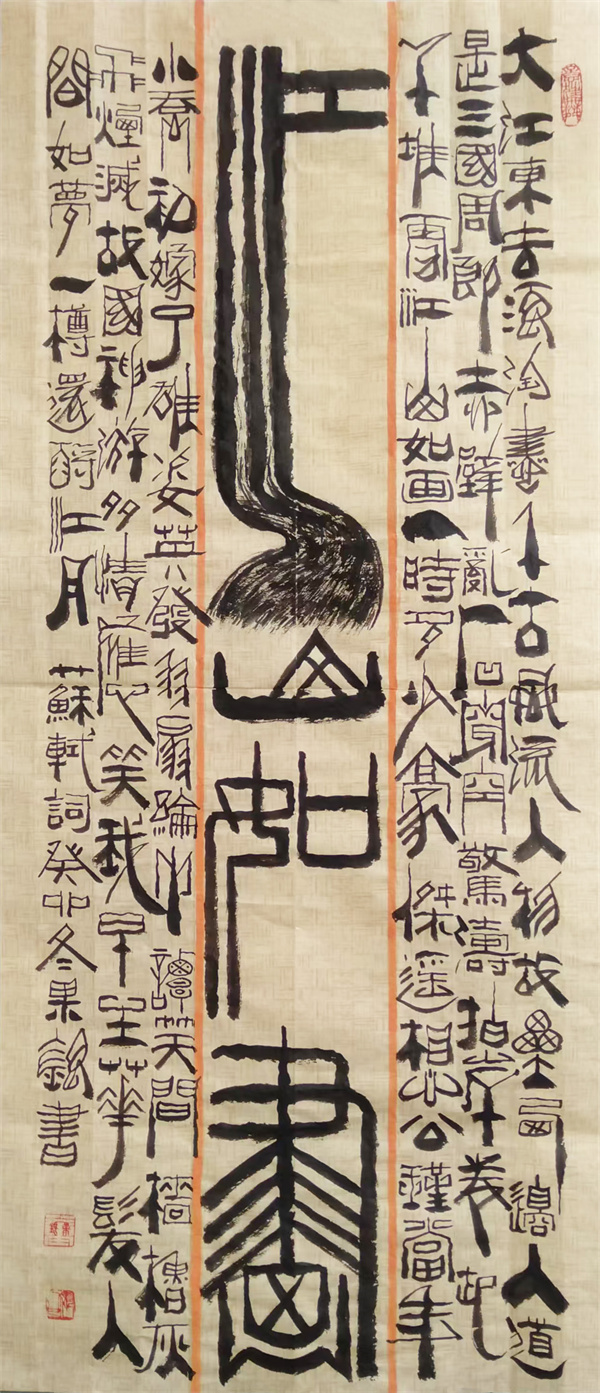 大江東去浪淘盡千古風流人物故壘西邊人道
是三國周郎赤壁亂石穿空驚濤拍岸卷起
千堆雪江山如画一時多少豪傑遥想公瑾當年
江山如畫
小喬初嫁了雄姿英發羽扇綸巾譚笑間檣櫓灰
飛煙滅故國神游多情應笑我早生華髮人
間如夢一樽還酹江月 蘇軾詞癸卯冬果書